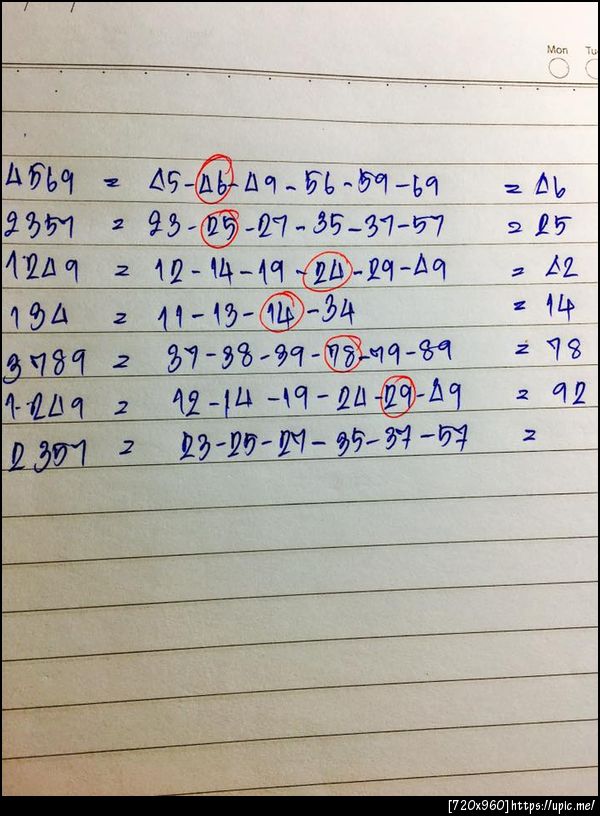 Mon Tu
4569 = 45-46-49-56-59-69 = 46
2357 = 23-25-27-35-37-57 = 25
1249 = 12-14-19-24-29-49 = 42
134 = 11-13-14-34 = 14
3789 = 37-38-39-78-79-89 = 78
1249 = 12-14-19-24-29-49 = 92
2357 = 23-25-27-35-37-57 =
[720x960]https://upic.me/